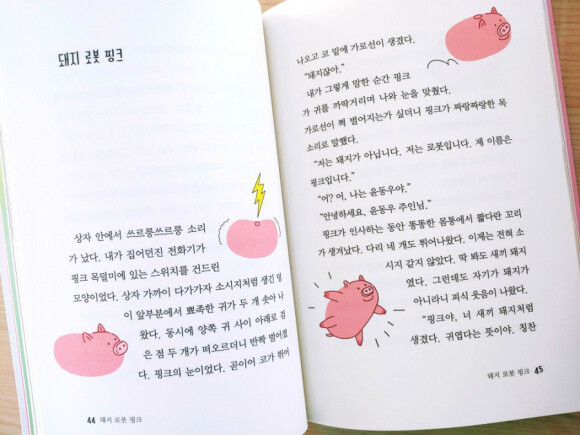 돼지 로봇 핑크
상자 안에서 쓰르릉쓰르릉 소리
가 났다. 내가 집어던진 전화기가
핑크 목덜미에 있는 스위치를 건드린
모양이었다. 상자 가까이 다가가자 소시지처럼 생긴 덩
이 앞부분에서 뾰족한 귀가 두 개 솟아 나
왔다. 동시에 양쪽 귀 사이 아래로 검
은 점 두 개가 떠오르더니 반짝 벌어졌
다. 핑크의 눈이었다. 곧이어 코가 튀어
44 돼지 로봇 핑크
나오고 코 밑에 가로선이 생겼다.
“돼지잖아.”
내가 그렇게 말한 순간 핑크
가 귀를 까딱거리며 나와 눈을 맞췄다.
가로선이 쩍 벌어지는가 싶더니 핑크가 짜랑짜랑한 목
소리로 말했다.
“저는 돼지가 아닙니다. 저는 로봇입니다. 제 이름은
핑크입니다.”
“어? 어, 나는 윤동우야.”
“안녕하세요, 윤동우 주인님.”
핑크가 인사하는 동안 똥똥한 몸통에서 짧다란 꼬리
가 생겨났다. 다리 네 개도 튀어나왔다. 이제는 전혀 소
시지 같지 않았다. 딱 봐도 새끼 돼지
였다. 그런데도 자기가 돼지가
아니라니 피식 웃음이 나왔다.
“핑크야, 너 새끼 돼지처럼
생겼다. 귀엽다는 뜻이야. 칭찬
돼지 로봇 핑크 45